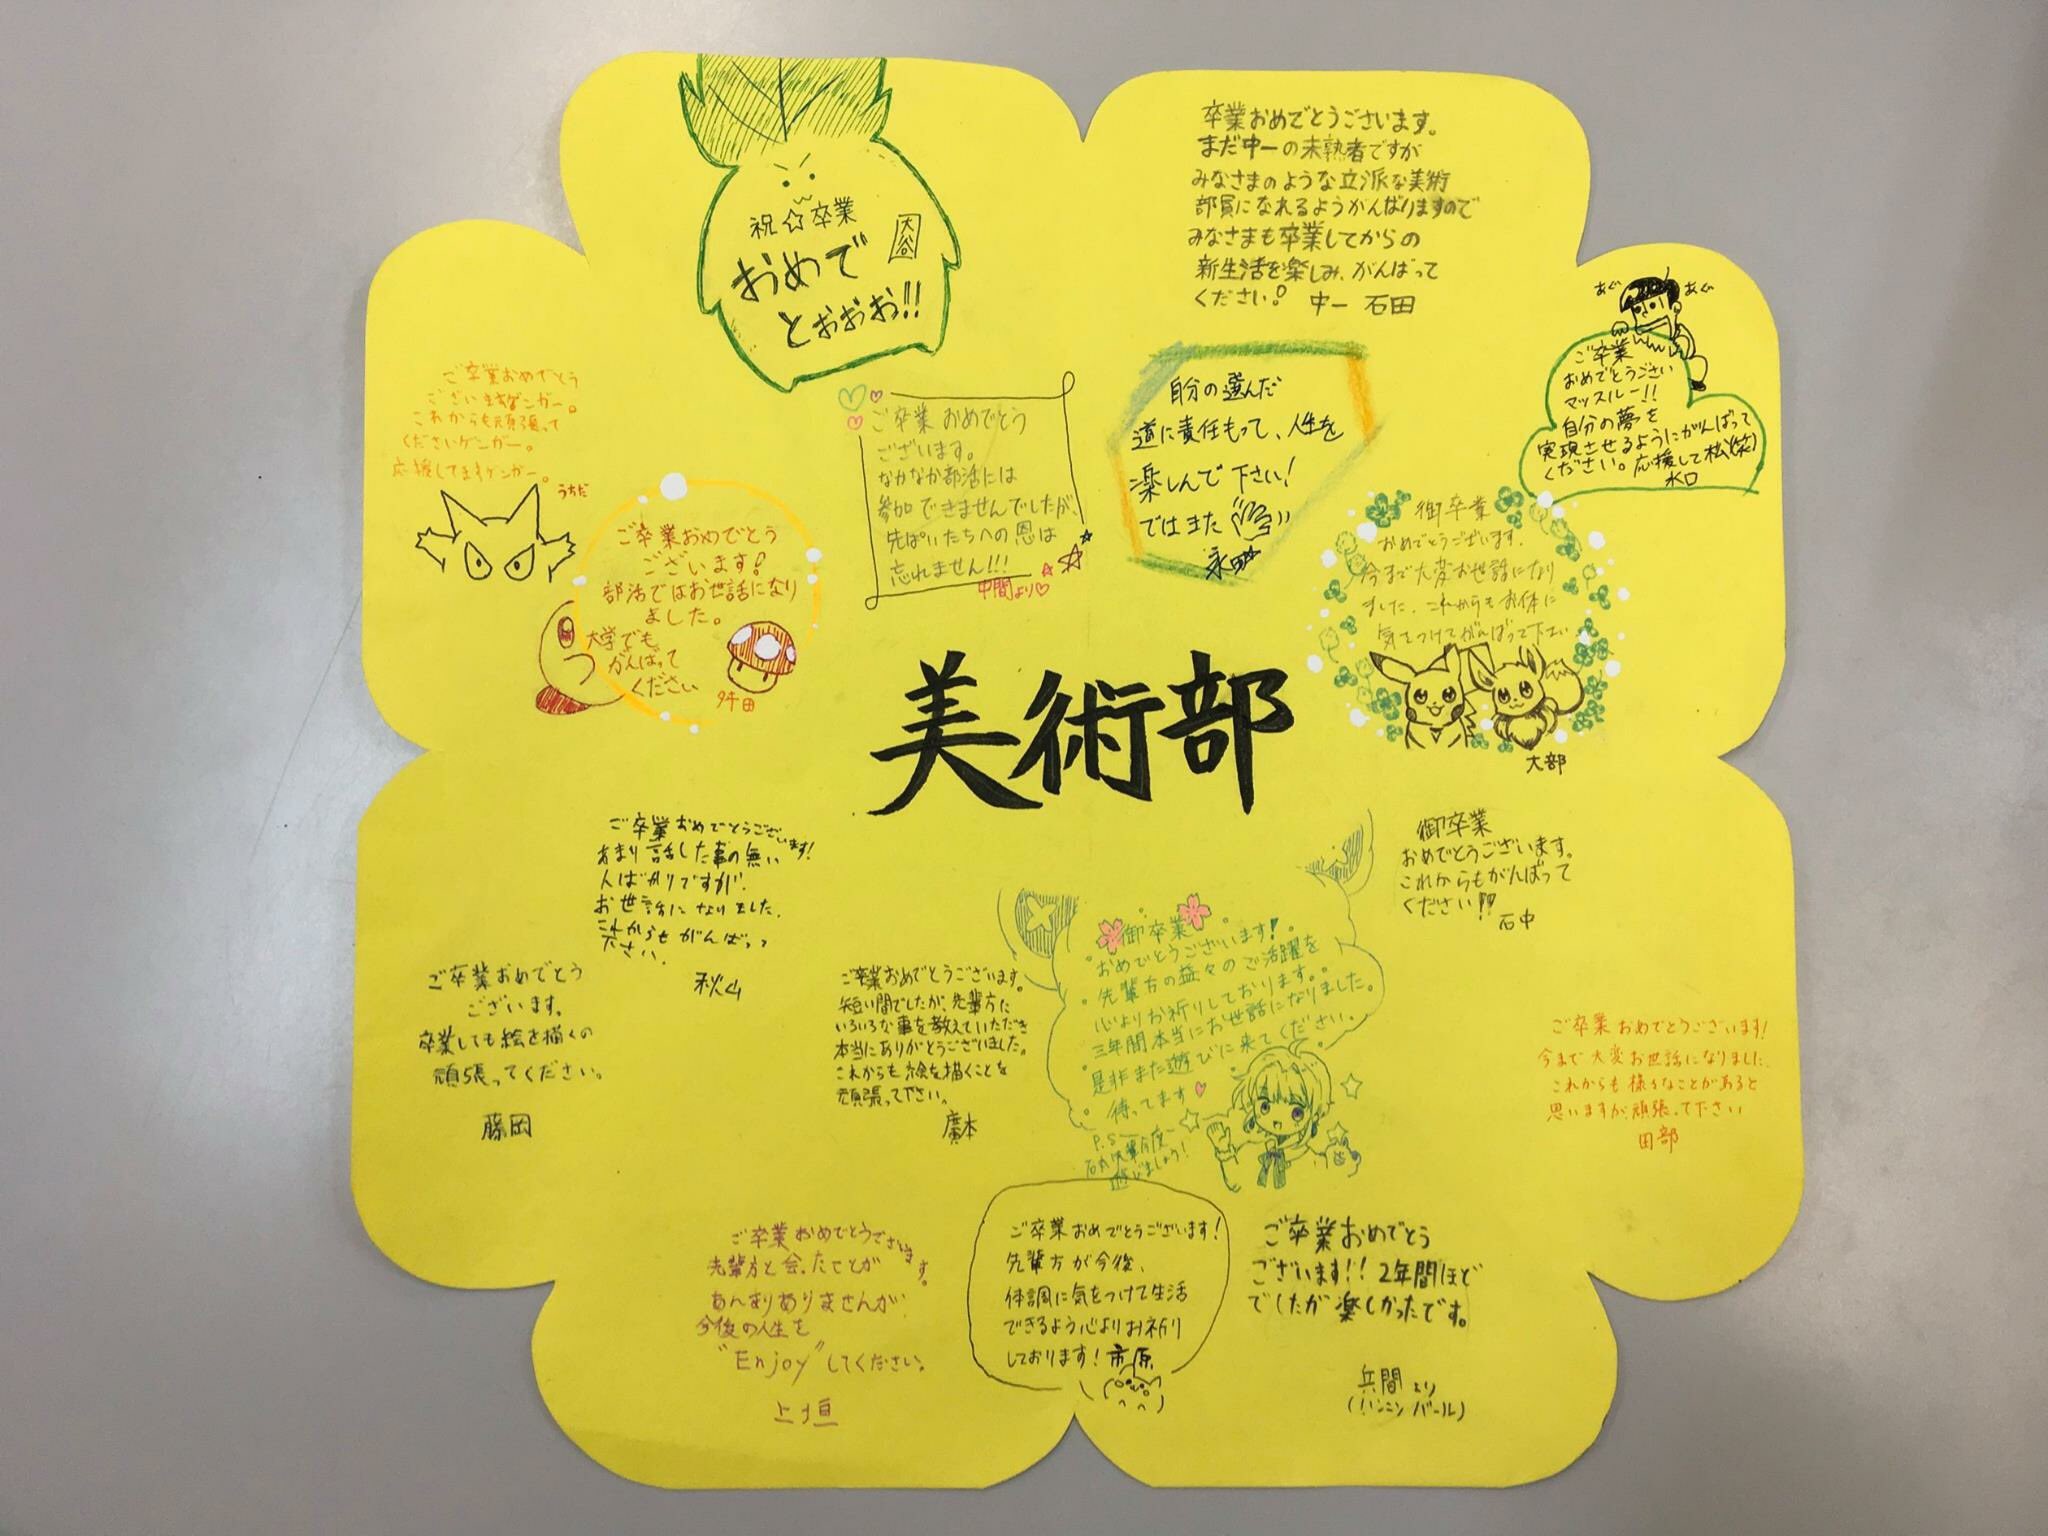 祝☆卒業
おめで
とぉぉぉ!!
大谷
卒業おめでとうございます。
まだ中一の未熟者ですが
みなさまのような立派な美術
部員になれるようがんばりますので
みなさまも卒業してからの
新生活を楽しみ、がんばって
ください! 中一 石田
あぐ
あぐ
ご卒業
おめでとうござい
マッスルー!!
自分の夢を
実現させるようにがんばって
ください。応援して松(笑)
水口
ご卒業おめでとう
ございますゲンガー。
これからも頑張って
くださいゲンガー。
応援してますゲンガー。
うちだ
ご卒業おめでとう
ございます!
部活ではお世話になり
ました。
大学でも、
がんばって
ください
ご卒業 おめでとう
ございます。
なかなか部活には
参加できませんでしたが、
先ぱいたちへの恩は
忘れません!!!
中間より♡
自分の選んだ
道に責任もって、人生を
楽しんで下さい!
ではまた
永田
御卒業
おめでとうございます.
今まで大変お世話になり
ました.これからもお体に
気をつけてがんばって下さい
大部
美術部
ご卒業おめでとうございます!
あまり話した事の無い
人ばかりですが、
お世話になりました.
これからもがんばって
ださい.
秋山
御卒業
おめでとうございます。
これからもがんばって
ください!!
石中
ご卒業おめでとう
ございます。
卒業しても絵を描くの
頑張ってください。
藤岡
ご卒業おめでとうございます。
短い間でしたが、先輩方に
いろいろな事を教えていただき
本当にありがとうございました。
これからも絵を描くことを
頑張って下さい。
廣本
御卒業
おめでとうございます!
先輩方の益々のご活躍を
心よりお祈りしております。
三年間本当にお世話になりました。
是非また遊びに来てください。
待ってます
P.S
遊びましょう!
ご卒業おめでとうございます!
今まで大変お世話になりました.
これからも様々なことがあると
思いますが頑張って下さい
田部
ご卒業おめでとうございます。
先輩方と会ったことが
あんまりありませんが、
今後の人生を
"Enjoy"してください。
上垣
ご卒業おめでとうございます!
先輩方が今後、
体調に気をつけて生活
できるよう心よりお祈り
しております! 市原
ご卒業おめでとう
ございます!! 2年間ほど
でしたが楽しかったです。
兵間より
(ハンニンバール)